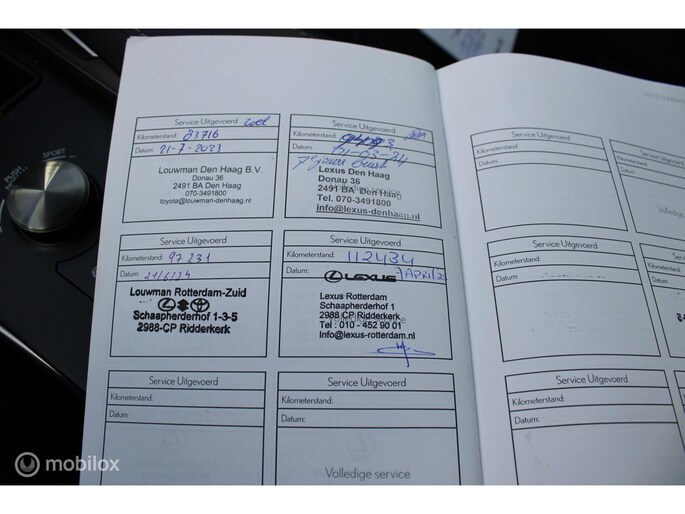 PUSH
SPORT
Service Uitgevoerd
Kilometerstand: 83716
Datum: 21-7-2023
Louwman Den Haag B.V.
Donau 36
2491 BA Den Haag
070-3491800
toyota@louwman-denhaag.nl
Service Uitgevoerd
Kilometerstand:
Datum: 01-03-24
Lexus Den Haag
Donau 36
2491 BA Den Haag
Tel. 070-3491800
info@lexus-denhaag.nl
Service Uitgevoerd
Kilometerstand: 97231
Datum: 21/6/24
Louwman Rotterdam-Zuid
Schaapherderhof 1-3-5
2988-CP Ridderkerk
Service Uitgevoerd
Kilometerstand: 112434
Datum: 7 April/25
LEXUS
Lexus Rotterdam
Schaapherderhof 1
2988 CP Ridderkerk
Tel : 010 - 452 90 01
Info@lexus-rotterdam.nl
Service Uitgevoerd
Kilometerstand:
Datum:
Service Uitgevoerd
Kilometerstand:
Datum:
Volledige service
Service Uitgevoerd
Kilometerstand:
Datum:
Kilometerstand:
Datum:
Volledige
Service Uitgevoerd
Kilometerstand:
Datum:
Service Uitgevoerd
Kilometerstand:
Datum:
mobilox